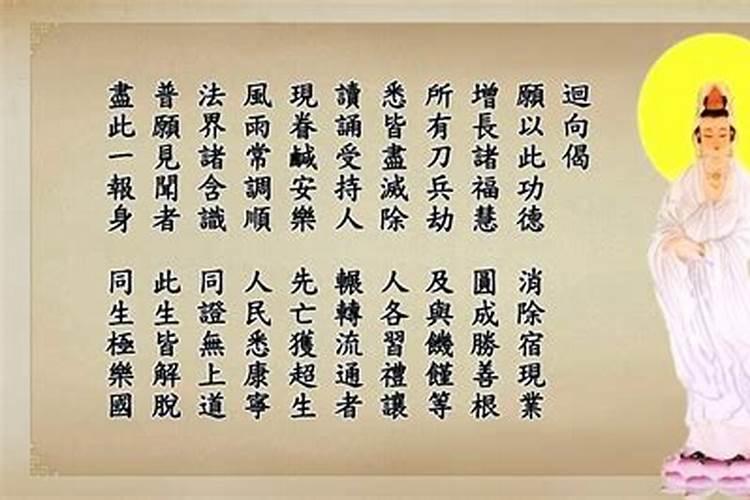 迴向偈
願以此功德 消除宿現業
增長諸福慧 圓成勝善根
所有刀兵劫 及與饑饉等
悉皆盡滅除 人各習禮讓
讀誦受持人 輾轉流通者
現眷鹹安樂 先亡獲超生
風雨常調順 人民悉康寧
法界諸含識 同證無上道
普願見聞者 此生皆解脫
盡此一報身 同生極樂國